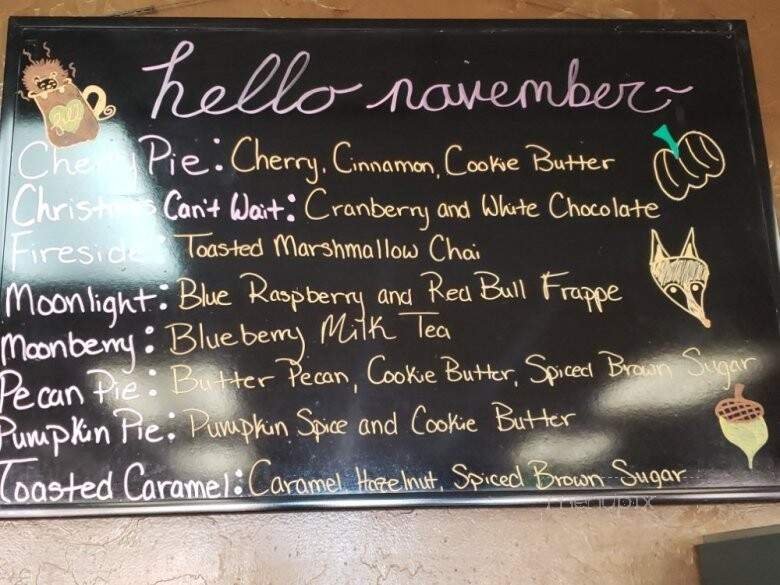 hello november~
Cherry Pie: Cherry, Cinnamon, Cookie Butter
Christmas Can't Wait: Cranberry and White Chocolate
Fireside: Toasted Marshmallow Chai
Moonlight: Blue Raspberry and Red Bull Frappe
Moonberry: Blueberry Milk Tea
Pecan Pie: Butter Pecan, Cookie Butter, Spiced Brown Sugar
Pumpkin Pie: Pumpkin Spice and Cookie Butter
Toasted Caramel: Caramel, Hazelnut, Spiced Brown Sugar
menupix